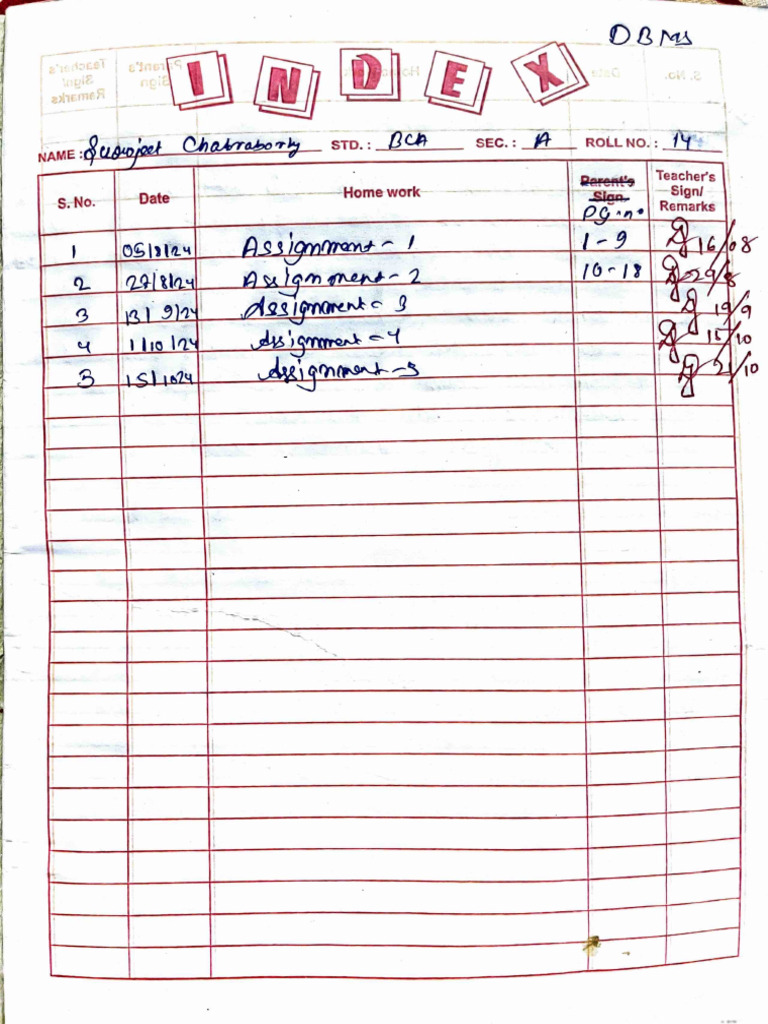 DBMS
INDEX
NAME : Chakraborty STD. : BCA SEC. : A ROLL NO. : 14
S. No. Date Home work Parent's Sign. Pg. no. Teacher's Sign/ Remarks
1 05/8/24 Assignment - 1 1 - 9 16/08
2 27/8/24 Assignment - 2 10 - 18 29/8
3 13/9/24 Assignment - 3 19/9
4 1/10/24 Assignment - 4 15/10
5 15/10/24 Assignment - 5 21/10